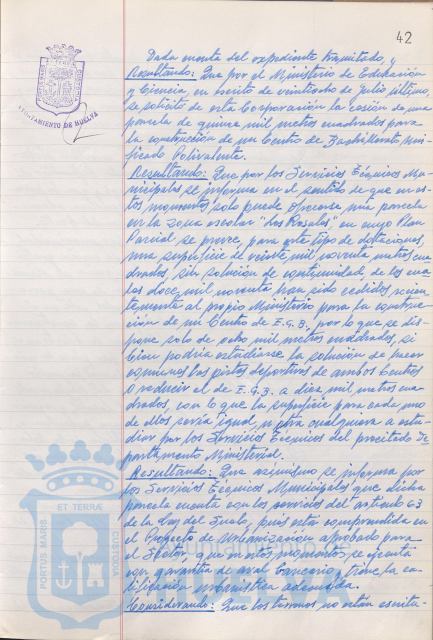 42
AYUNTAMIENTO DE HUELVA
Dada cuenta del expediente tramitado, y
Resultando: Que por el Ministerio de Educación
y Ciencia, en escrito de veintiuno de Julio último,
se solicita de esta Corporación la cesión de una
parcela de quince mil metros cuadrados para
la construcción de un Centro de Bachillerato Uni-
ficado Polivalente.
Resultando: Que por los Servicios Técnicos Mu-
nicipales se informa en el sentido de que en es-
tos momentos sólo puede ofrecerse una parcela
en la zona escolar "Los Rosales", en cuyo Plan
Parcial se prevé, para este tipo de dotaciones,
una superficie de veinte mil noventa metros cua-
drados, sin solución de continuidad, de los cua-
les doce mil noventa han sido cedidos recien-
temente al propio Ministerio para la construc-
ción de un Centro de E.G.B., por lo que se dis-
pone solo de ocho mil metros cuadrados, si
bien podría estudiarse la solución de hacer
comunes las pistas deportivas de ambos Centros
o reducir el de E.G.B. a diez mil metros cua-
drados, con lo que la superficie para cada uno
de ellos sería igual, u otra cualquiera a estu-
diar por los Servicios Técnicos del precitado De-
partamento Ministerial.
Resultando: Que asimismo se informa por
los Servicios Técnicos Municipales que dicha
parcela cuenta con los servicios del artículo 63
de la Ley del Suelo, pues está comprendida en
el Proyecto de Urbanización aprobado para
el Sector, que en estos momentos se ejecuta
con garantía de aval bancario y tiene la ca-
lificación urbanística adecuada.
Considerando: Que los terrenos no están escritu-
PORTUS MARIS ET TERRAE CUSTODIA